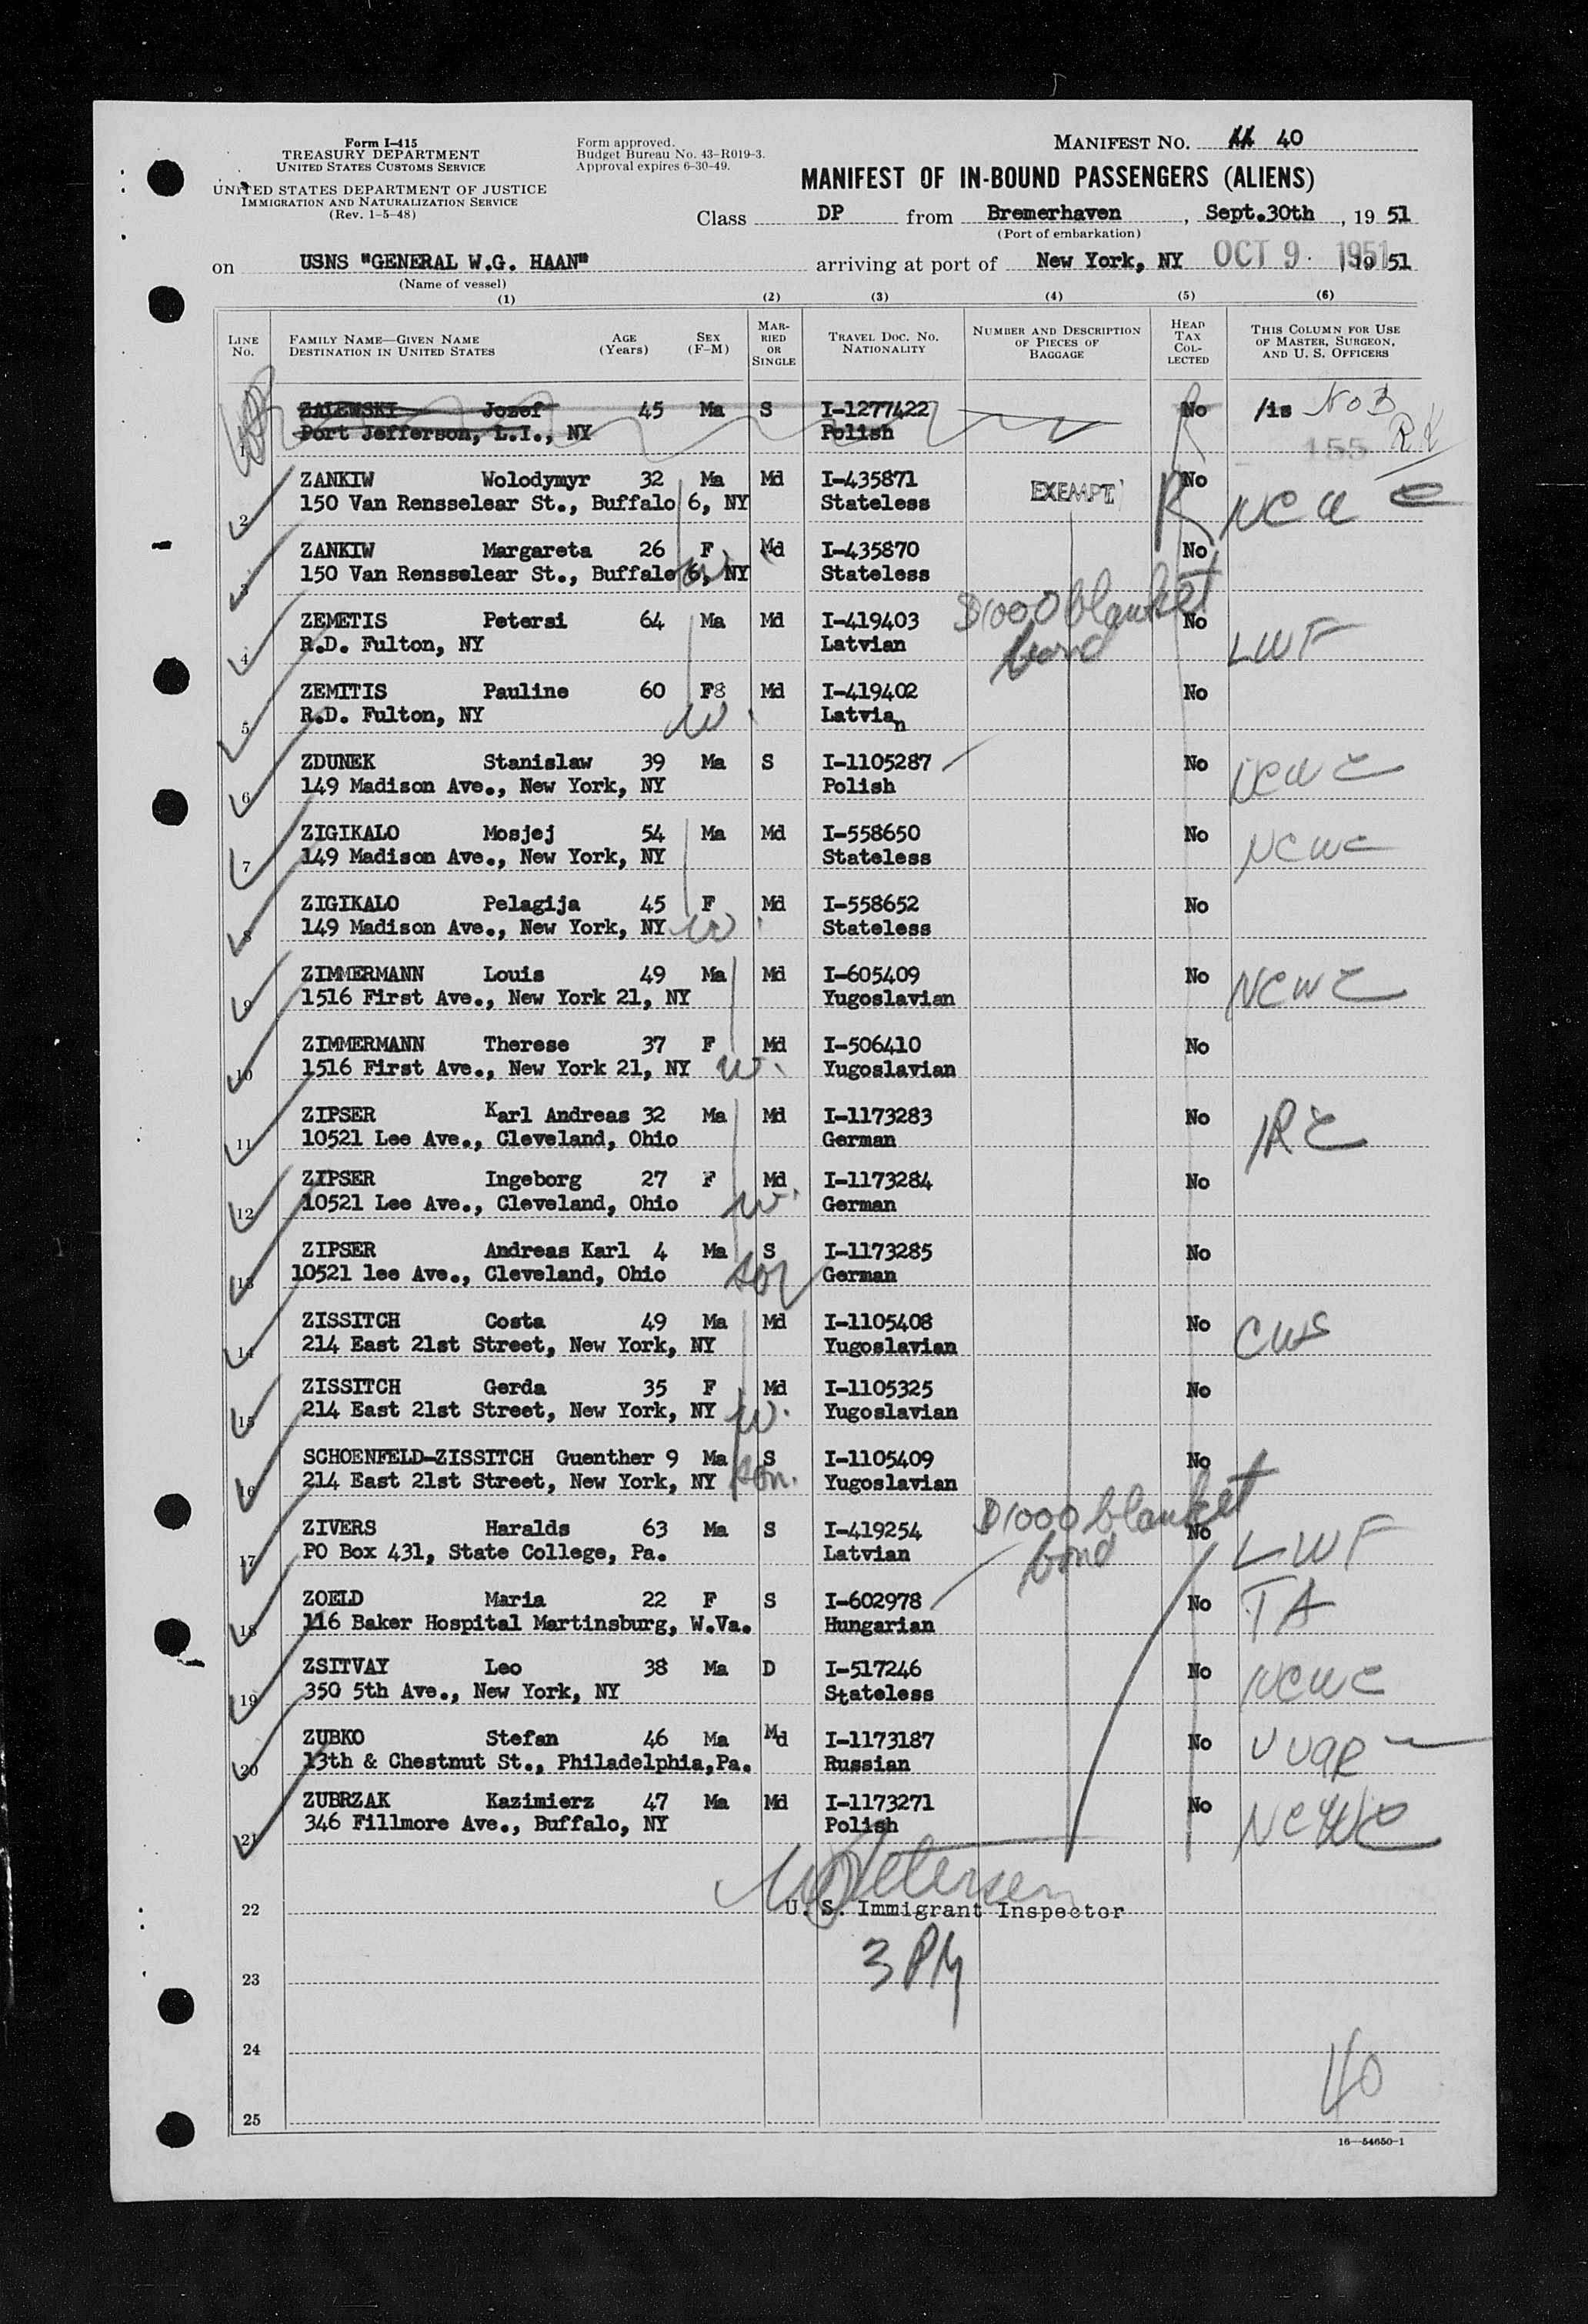 Form I-415
TREASURY DEPARTMENT
UNITED STATES CUSTOMS SERVICE
UNITED STATES DEPARTMENT OF JUSTICE
IMMIGRATION AND NATURALIZATION SERVICE
(Rev. 1-5-48)
Form approved.
Budget Bureau No. 43-R019-3.
Approval expires 6-30-49.
MANIFEST NO. 40
MANIFEST OF IN-BOUND PASSENGERS (ALIENS)
Class DP from Bremerhaven, Sept.30th, 19 51
(Port of embarkation)
on USNS "GENERAL W.G. HAAN" arriving at port of New York, NY OCT 9 1951, 19 51
(Name of vessel)
(1) (2) (3) (4) (5) (6)
LINE No. FAMILY NAME—GIVEN NAME DESTINATION IN UNITED STATES AGE (Years) SEX (F-M) MARRIED OR SINGLE TRAVEL DOC. NO. NATIONALITY NUMBER AND DESCRIPTION OF PIECES OF BAGGAGE HEAD TAX COLLECTED THIS COLUMN FOR USE OF MASTER, SURGEON, AND U. S. OFFICERS
1 ZALEWSKI Jozef 45 Ma S I-1277422 No /is NOB
Port Jefferson, L.I., NY Polish 155
2 ZANKIW Wolodymyr 32 Ma Md I-435871 EXEMPT No
150 Van Rensselear St., Buffalo 6, NY Stateless NCWC
3 ZANKIW Margareta 26 F Md I-435870 No
150 Van Rensselear St., Buffalo 6, NY W Stateless
4 ZEMETIS Petersi 64 Ma Md I-419403 $1000 blanket bond No LWF
R.D. Fulton, NY Latvian
5 ZEMITIS Pauline 60 F8 Md I-419402 No
R.D. Fulton, NY W. Latvian
6 ZDUNEK Stanislaw 39 Ma S I-1105287 No NCWC
149 Madison Ave., New York, NY Polish
7 ZIGIKALO Mosjej 54 Ma Md I-558650 No NCWC
149 Madison Ave., New York, NY Stateless
8 ZIGIKALO Pelagija 45 F Md I-558652 No
149 Madison Ave., New York, NY W Stateless
9 ZIMMERMANN Louis 49 Ma Md I-605409 No NCWC
1516 First Ave., New York 21, NY Yugoslavian
10 ZIMMERMANN Therese 37 F Md I-506410 No
1516 First Ave., New York 21, NY W. Yugoslavian
11 ZIPSER Karl Andreas 32 Ma Md I-1173283 No IRC
10521 Lee Ave., Cleveland, Ohio German
12 ZIPSER Ingeborg 27 F Md I-1173284 No
10521 Lee Ave., Cleveland, Ohio W. German
13 ZIPSER Andreas Karl 4 Ma S I-1173285 No
10521 lee Ave., Cleveland, Ohio son German
14 ZISSITCH Costa 49 Ma Md I-1105408 No CWS
214 East 21st Street, New York, NY Yugoslavian
15 ZISSITCH Gerda 35 F Md I-1105325 No
214 East 21st Street, New York, NY W. Yugoslavian
16 SCHOENFELD-ZISSITCH Guenther 9 Ma S I-1105409 No
214 East 21st Street, New York, NY son. Yugoslavian
17 ZIVERS Haralds 63 Ma S I-419254 $1000 blanket bond No LWF
PO Box 431, State College, Pa. Latvian
18 ZOELD Maria 22 F S I-602978 No TA
116 Baker Hospital Martinsburg, W.Va. Hungarian
19 ZSITVAY Leo 38 Ma D I-517246 No NCWC
350 5th Ave., New York, NY Stateless
20 ZUBKO Stefan 46 Ma Md I-1173187 No
13th & Chestnut St., Philadelphia,Pa. Russian
21 ZUBRZAK Kazimierz 47 Ma Md I-1173271 No NCWC
346 Fillmore Ave., Buffalo, NY Polish
Petersen
22 U. S. Immigrant Inspector
23 3 PM
24
40
25
16—54650-1